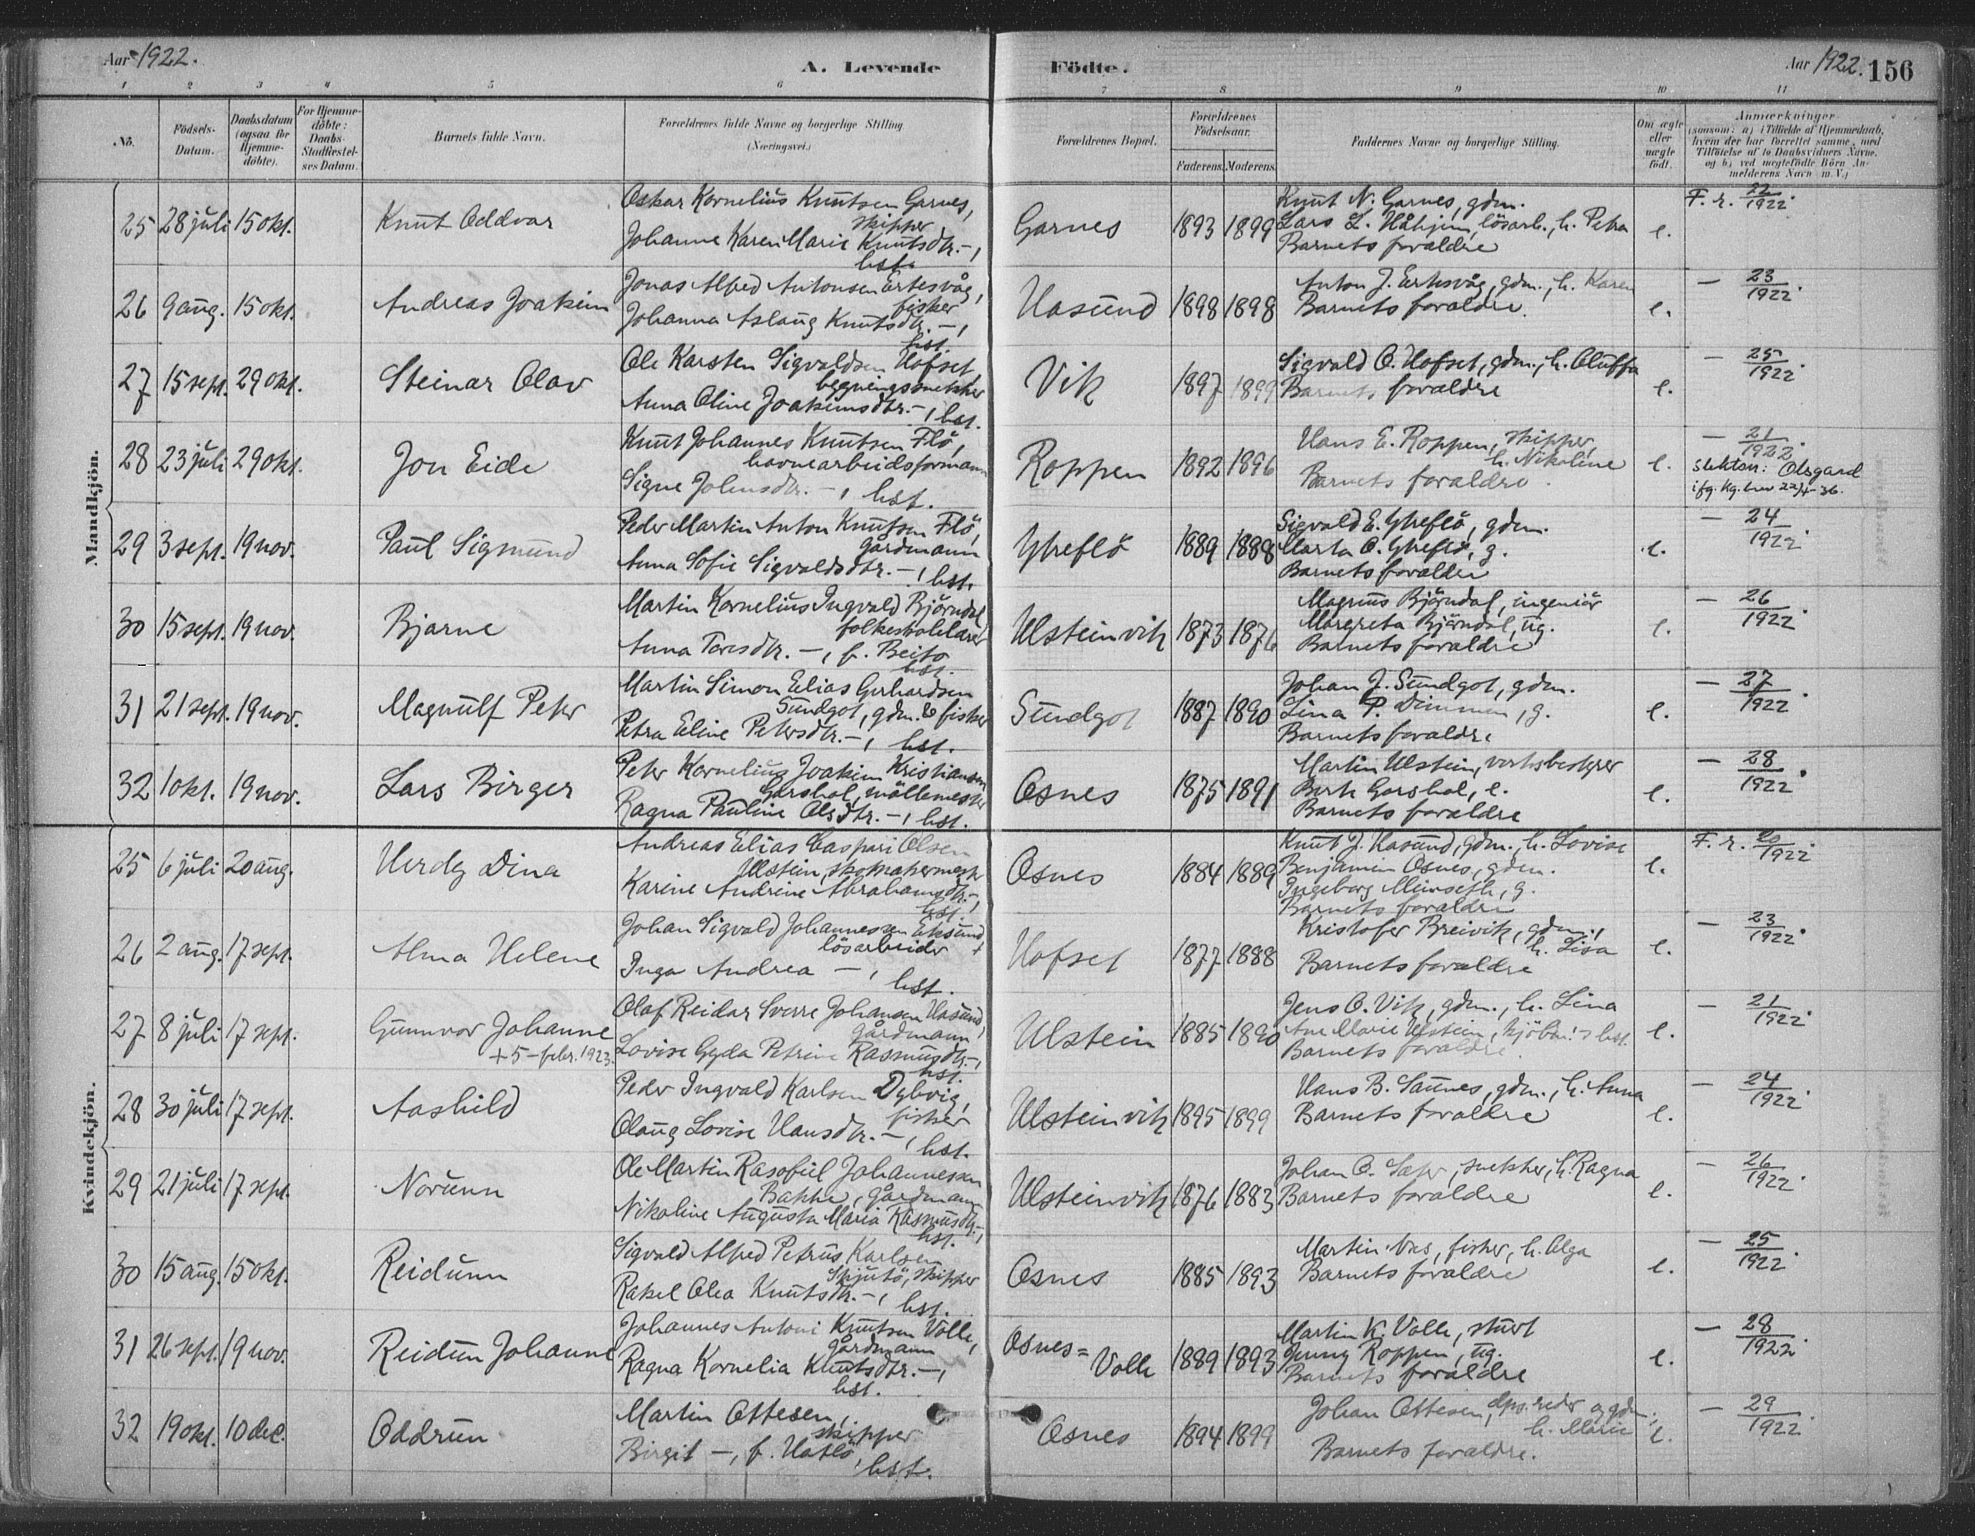 Aar 1922.
A. Levende Födte.
Aar 1922. 156
1 2 3 4 5 6 7 8 9 10 11
No.
Födsels-Datum.
Daabsdatum (ogsaa for Hjemmedöbte).
For Hjemmedöbte: Daabs-Stadfæstelses Datum.
Barnets fulde Navn.
Forældrenes fulde Navne og borgerlige Stilling (Næringsvei.)
Forældrenes Bopæl.
Forældrenes Födselsaar.
Faderens. Moderens.
Faddernes Navne og borgerlige Stilling.
Om ægte eller uægte födt.
Anmærkninger
(saasom: a) i Tilfælde af Hjemmedaab, hvem der har forrettet samme, med Tilföielse af to Daabsvidners Navne, og b) ved uægtefödte Börn Anmelderens Navn m. V.)
Mandkjön.
25 28 juli 15 okt. Knut Oddvar
Oskar Kornelius Knutsen Garnes,
skipper
Johanne Karen Marie Knutsdtr. –,
hst.
Garnes 1893 1899
Knut N. Garnes, gdm.
Lars L. Håhjem, lösarb., h. Petra
Barnets foraldre
e. F. r. 22/1922.
26 9 aug. 15 okt. Andreas Joakim
Jonas Alfred Antonsen Ertesvåg,
fisker
Johanna Aslaug Knutsdtr. –,
hst.
Hasund 1898 1898
Anton J. Ertesvåg, gdm., h. Karen
Barnets foraldre.
e. – 23/1922.
27 15 sept. 29 okt. Steinar Olav
Ole Karsten Sigvaldsen Hofset,
bygningssnekker
Anna Oline Joakimsdtr. –, hst.
Vik 1897 1899
Sigvald O. Hofset, gdm., h. Oluffa
Barnets foraldre
e. – 25/1922.
28 23 juli 29 okt. Jon Eide
Knut Johannes Knutsen Flö,
havnearbeidsformann
Signe Johnsdtr. –, hst.
Roppen 1892 1896
Hans E. Roppen, skipper,
h. Nikoline
Barnets foraldre.
e. – 21/1922.
slektsn: Olsgard
ifg. Kg. brev 22/4-36.
29 3 sept. 19 nov. Paul Sigmund
Peder Martin Anton Knutsen Flö,
gårdmann
Anna Sofie Sigvaldsdtr. –, hst.
Ytreflö 1889 1888
Sigvald E. Ytreflö, gdm.
Marta O. Ytreflö, g.
Barnets foraldre
e. – 24/1922.
30 15 sept. 19 nov. Bjarne
Martin Kornelius Ingvald Björndal,
folkeskolelærer
Anna Toresdtr. –, f. Beito
hst.
Ulsteinvik 1873 1876
Magnus Björndal, ingeniör
Margreta Björndal, ug.
Barnets foraldre
e. – 26/1922.
31 21 sept. 19 nov. Magnulf Peter
Martin Simon Elias Gerhardsen
Sundgot, gdm. & fisker
Petra Eline Petersdtr. –, hst.
Sundgot 1887 1890
Johan J. Sundgot, gdm.
Lina P. Dimmen, g.
Barnets foraldre
e. – 27/1922.
32 1 okt. 19 nov. Lars Birger
Peter Kornelius Joakim Kristiansen
Garshol, möllemester
Ragna Pauline Olsdtr. –, hst.
Osnes 1875 1891
Martin Ulstein, verksbestyrer
Berte Garshol, e.
Barnets foraldre
e. – 28/1922.
Kvindekjön.
25 6 juli 20 aug. Herdy Dina
Andreas Elias Caspari Olsen
Ulstein, skomakermester
Karine Andrine Abrahamsdtr. –,
hst.
Osnes 1884 1889
Knut J. Hasund, gdm., h. Lovise
Benjamin Osnes, gdm.
Ingeborg Meinseth, g.
Barnets foraldre
e. F. r. 20/1922.
26 2 aug. 17 sept. Alma Helene
Johan Sigvald Johannessen Eksund,
lösarbeider
Inga Andrea –, hst.
Hofset 1877 1888
Kristofer Breivik, gdm.,
h. Lisa
Barnets foraldre
e. – 23/1922.
27 8 juli 17 sept. Gunnvor Johanne
+ 5-febr. 1923.
Olaf Reidar Sverre Johansen Hasund,
gårdmann
Lovise Gyda Petrine Rasmusdtr. –,
hst.
Ulstein 1885 1890
Jens O. Vik, gdm., h. Lina
Ane Marie Ulstein, kjöbm.s hst.
Barnets foraldre.
e. – 21/1922.
28 30 juli 17 sept. Aashild
Peder Ingvald Karlsen Dybvig,
fisker
Olaug Lovise Hansdtr. –, hst.
Ulsteinvik 1895 1899
Hans B. Saunes, gdm., h. Anna
Barnets foraldre
e. – 24/1922.
29 21 juli 17 sept. Norunn
Ole Martin Rasofiel Johannessen
Bakke, gårdmann
Nikoline Augusta Maria Rasmusdtr. –,
hst.
Ulsteinvik 1876 1883
Johan O. Sæter, snekker, h. Ragna
Barnets foraldre
e. – 26/1922.
30 15 aug. 15 okt. Reidunn
Sigvald Alfred Petrus Karlsen
Skjutö, skipper
Rakel Olea Knutsdtr. –, hst.
Osnes 1885 1893
Martin Aas, fisker, h. Olga
Barnets foraldre
e. – 25/1922.
31 26 sept. 19 nov. Reidun Johanne
Johannes Antoni Knutsen Volle,
gårdmann
Ragna Kornelia Knutsdtr. –,
hst.
Osnes=
Volle 1889 1893
Martin K. Volle, sturt
Jenny Roppen, ug.
Barnets foraldre
e. – 28/1922.
32 19 okt. 10 dec. Oddrun
Martin Ottesen,
skipper
Birgit –, f. Hatlö,
hst.
Osnes 1894 1899
Johan Ottesen, dps.reder og gdm.,
h. Marie
Barnets foraldre.
e. – 29/1922.